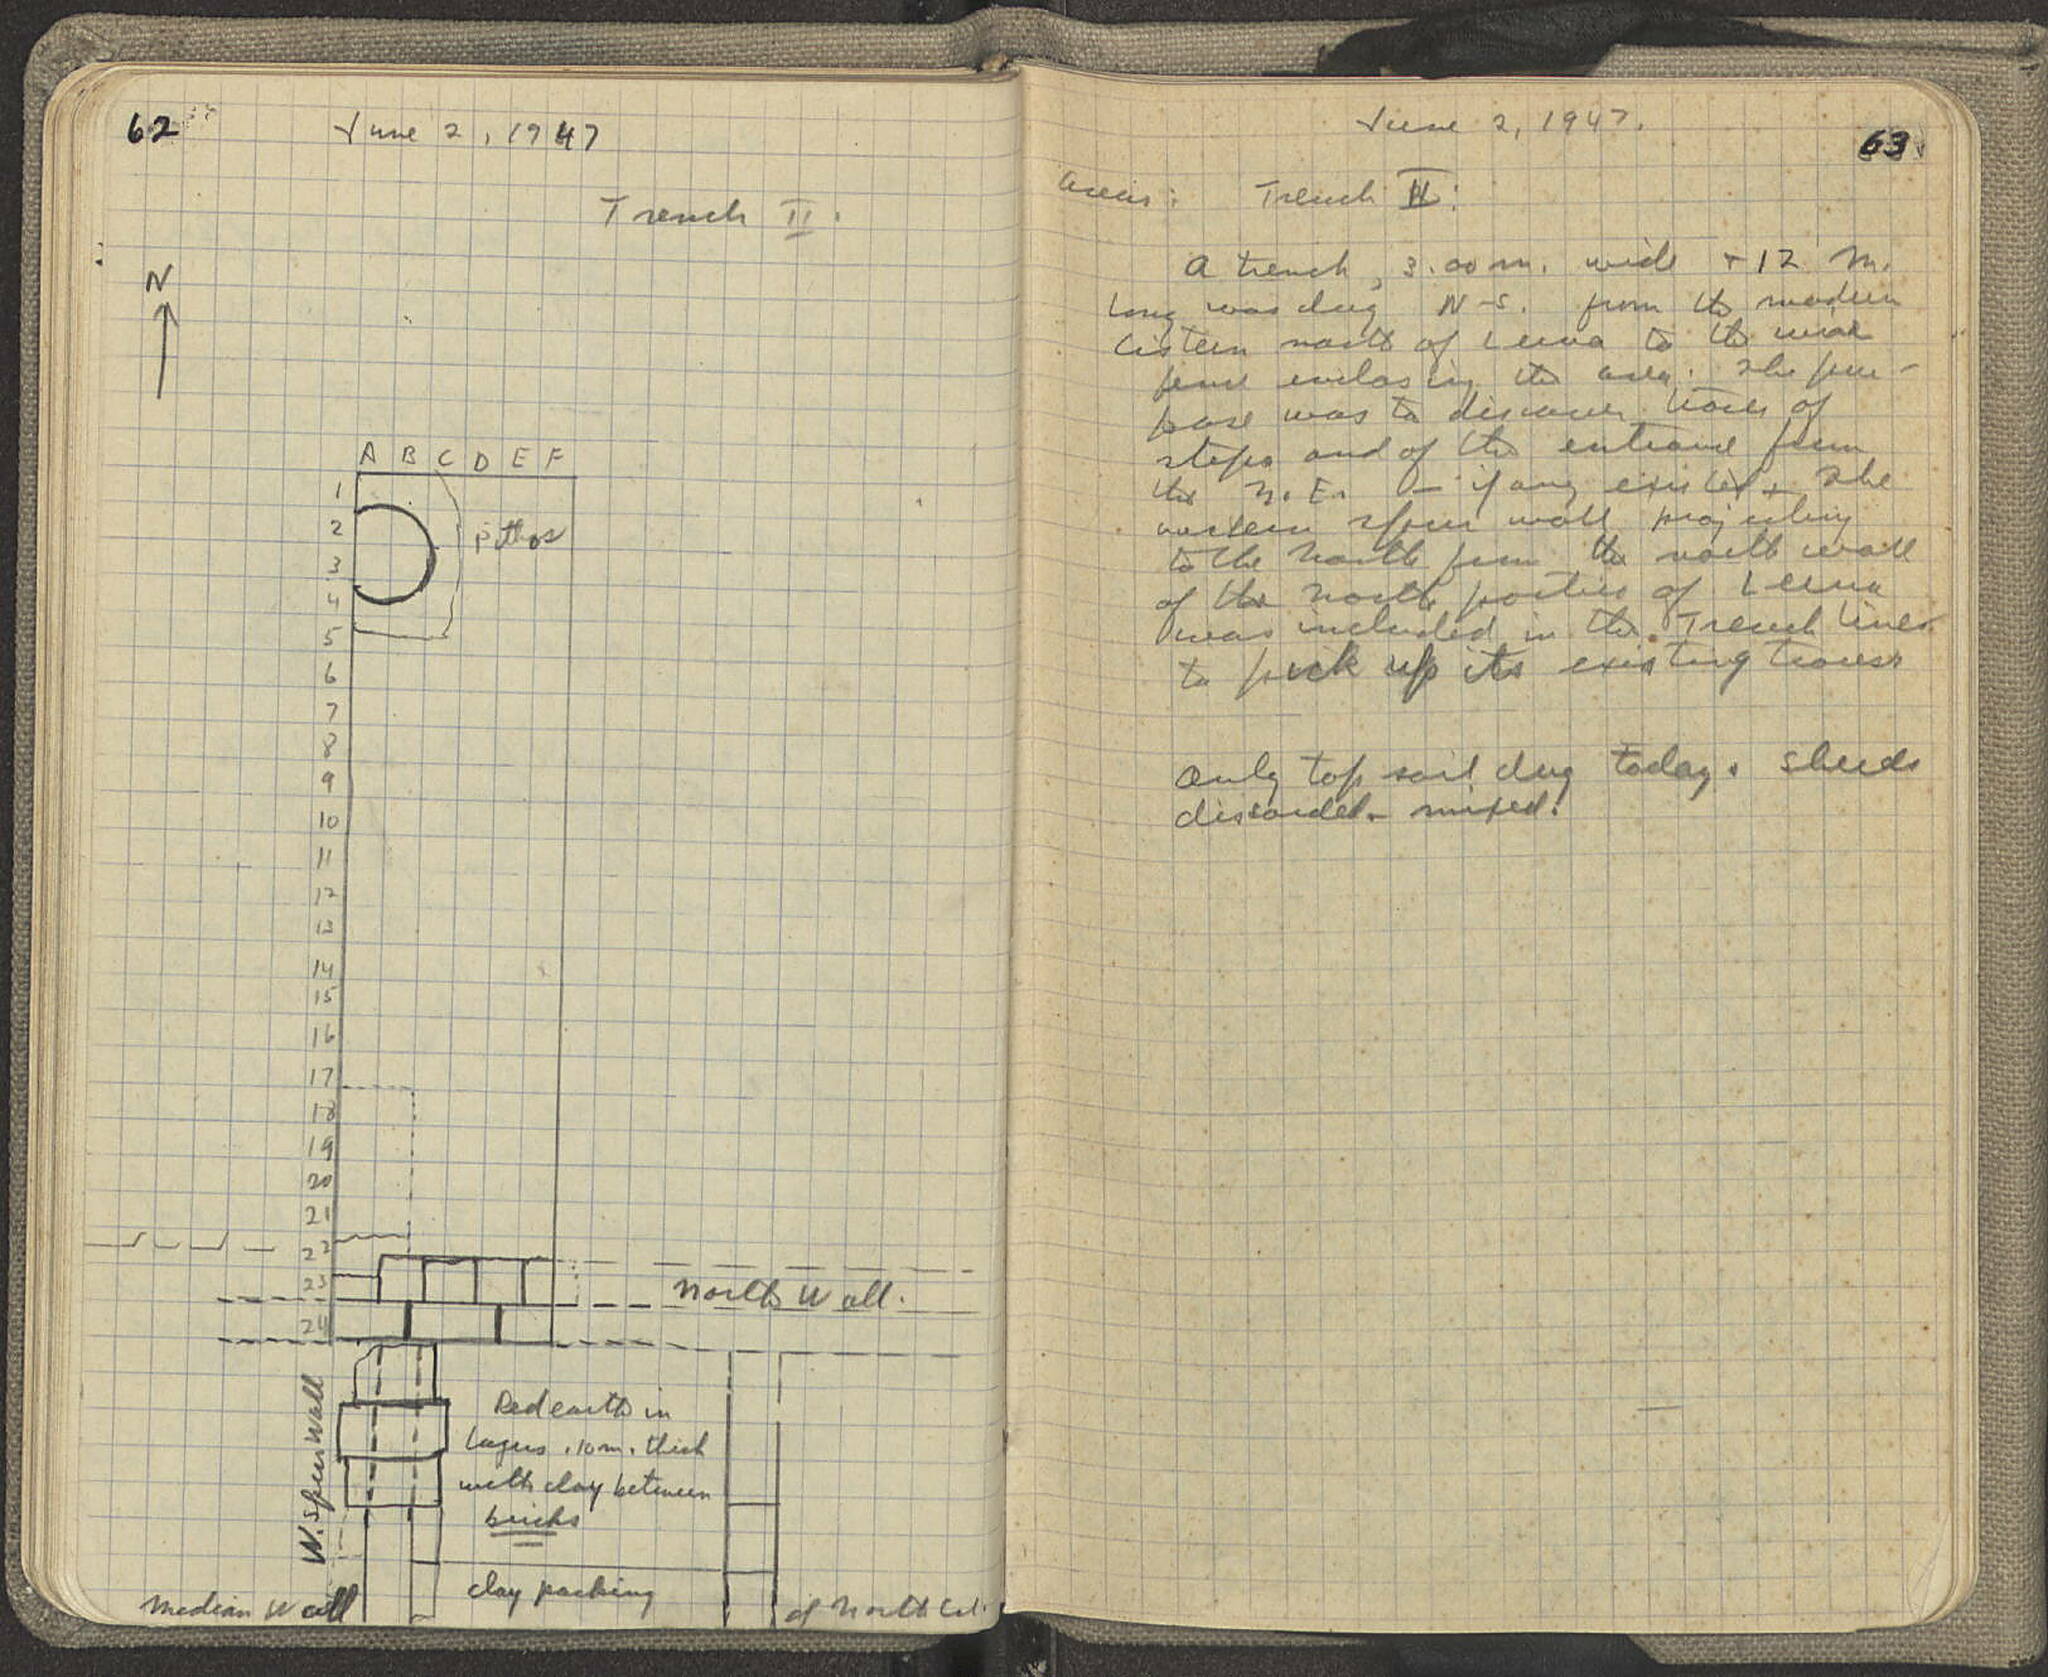 62
June 2, 1947
Trench II.
N
A B C D E F
1
2
pithos
3
4
5
6
7
8
9
10
11
12
13
14
15
16
17
18
19
20
21
22
23
North Wall.
24
W. Spur wall
Red earth in
layers .10 m. thick
with clay between
bricks
clay packing
Median Wall
of North Col.
June 2, 1947.
63
Area: Trench II:
A trench, 3.00 m. wide + 12 m.
long was dug N-S. from the modern
cistern north of Lerna to the wire
fence enclosing the area. The pur-
pose was to discover traces of
steps and of the entrance from
the N.E. - if any existed. The
western spur wall projecting
to the north from the north wall
of the north portico of Lerna
was included in the Trench lines
to pick up its existing traces
Only top soil dug today. Sherds
discarded - mixed.